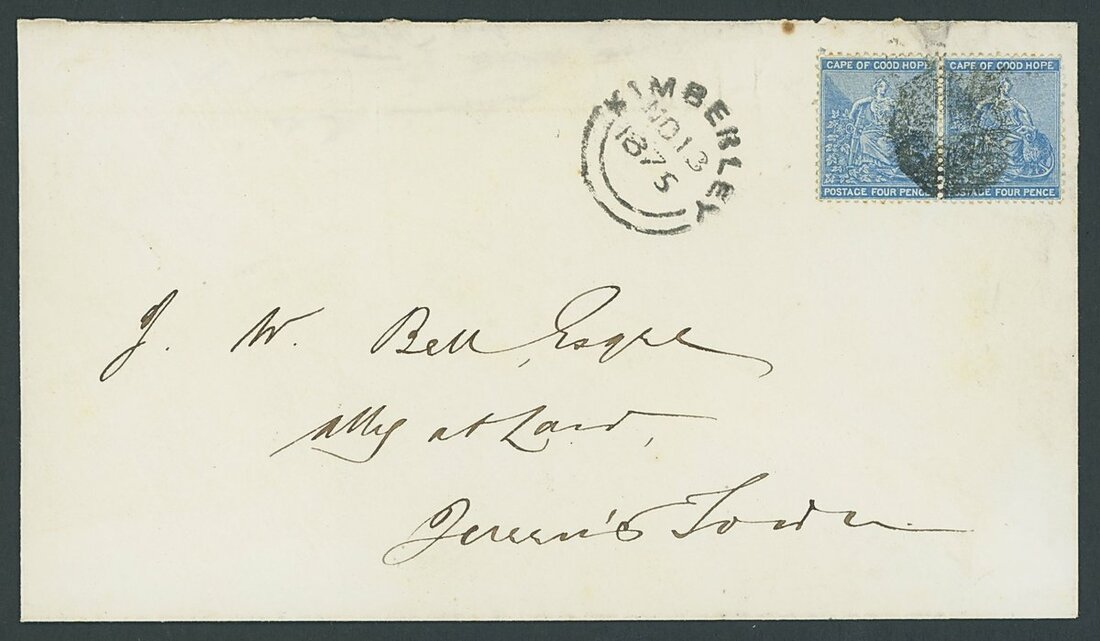 CAPE OF GOOD HOPE CAPE OF GOOD HOPE
POSTAGE FOUR PENCE POSTAGE FOUR PENCE
KIMBERLEY
NO 13
1875
J. W. Bell, Esqre
Atty at Law,
Town